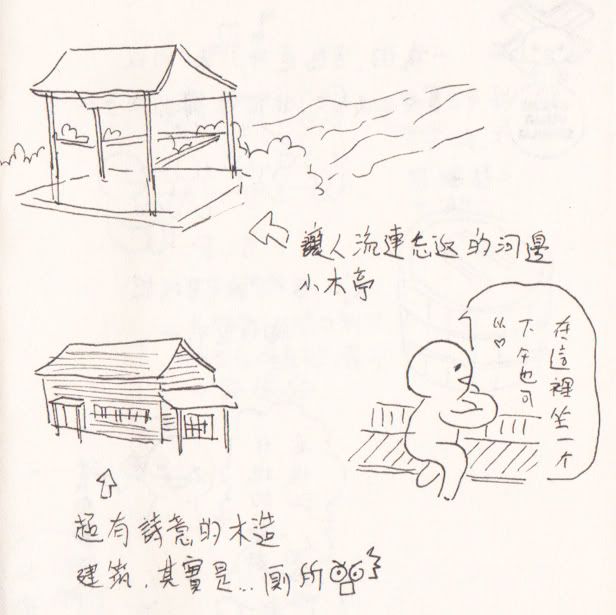 讓人流連忘返的河邊
小木亭
在這裡坐一个
下午也可
以♡
超有詩意的木造
建築，其實是...廁所